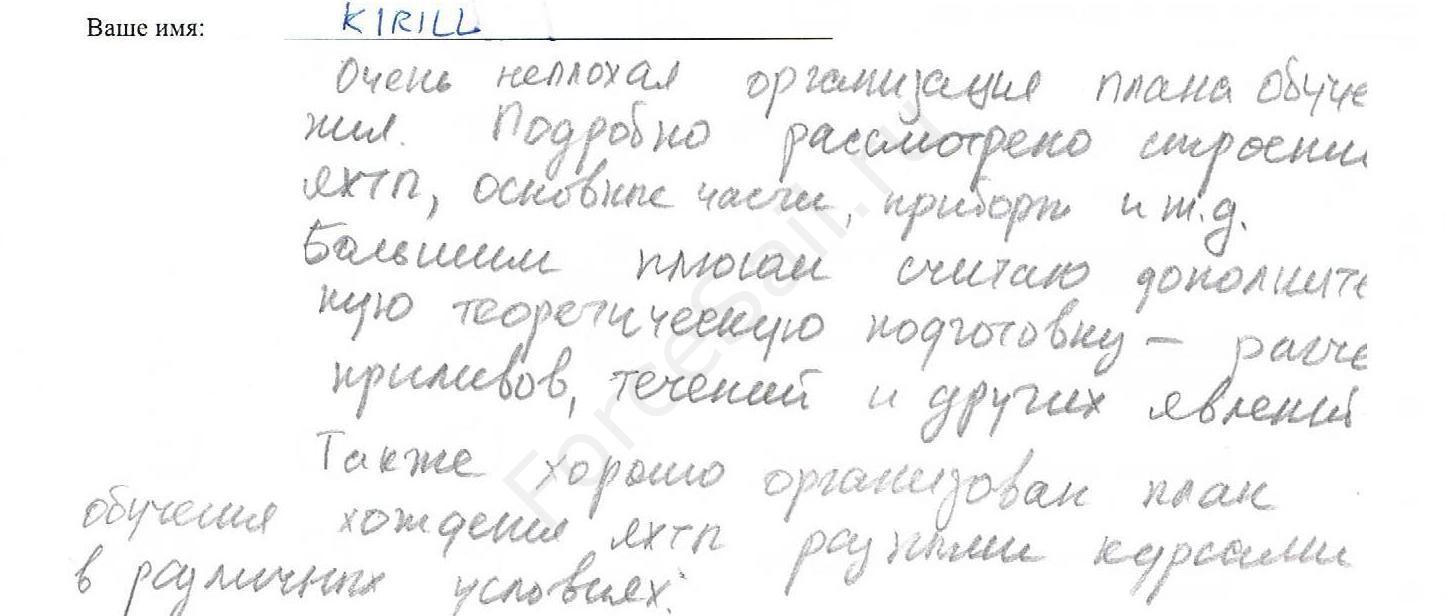 Ваше имя: KIRILL
Очень неплохая организация плана обуче
ния. Подробно рассмотрено строени
яхты, основные части, приборы и т.д.
Большим плюсом считаю дополните
ную теоретическую подготовку – расче
приливов, течений и других явлений
Также хорошо организован план
обучения хождения яхты разными курсами
в различных условиях.
ForceSail.ru